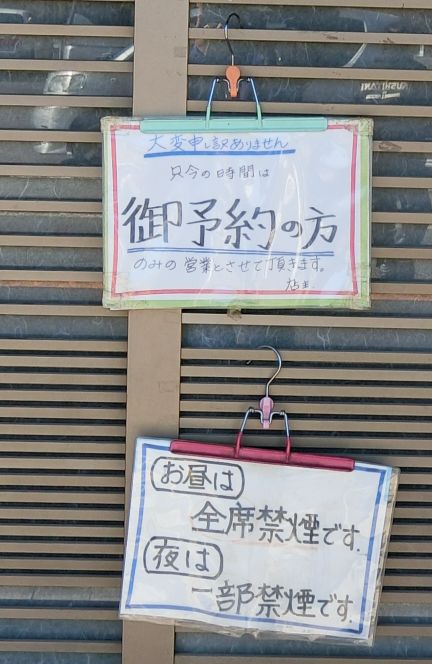 大変申し訳ありません
只今の時間は
御予約の方
のみの営業とさせて頂きます。
店主
お昼は
全席禁煙です.
夜は
一部禁煙です.